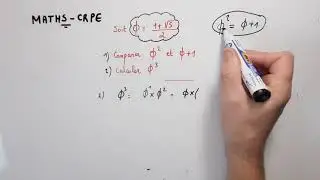 MATHS - CRPE
Soit φ = (1+√5)/2
φ² = φ+1
1) Comparer φ² et φ+1
2) Calculer φ³
2) φ³ = φ¹ × φ² = φ×(